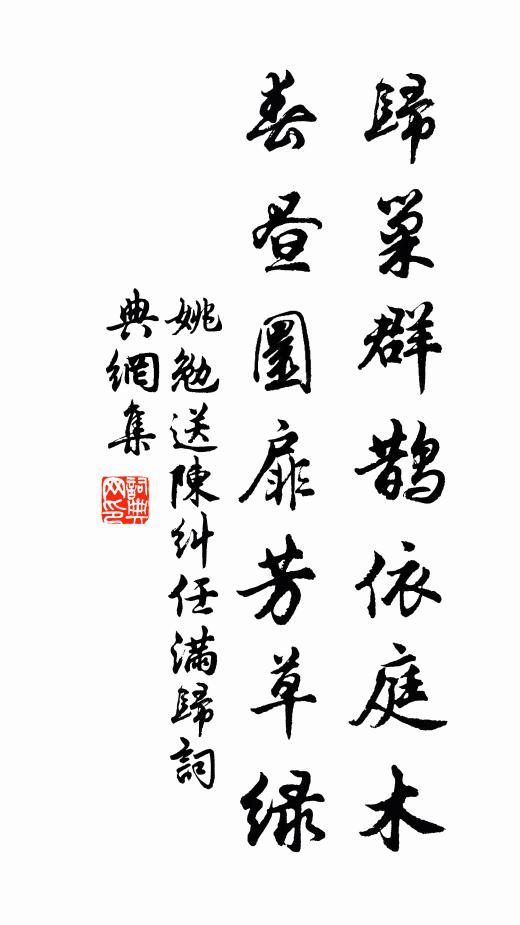 歸巢群鵲依庭木
春昼圜扉芳草緑
姚勉送陳糾任滿歸詞
典網集
詞典网印